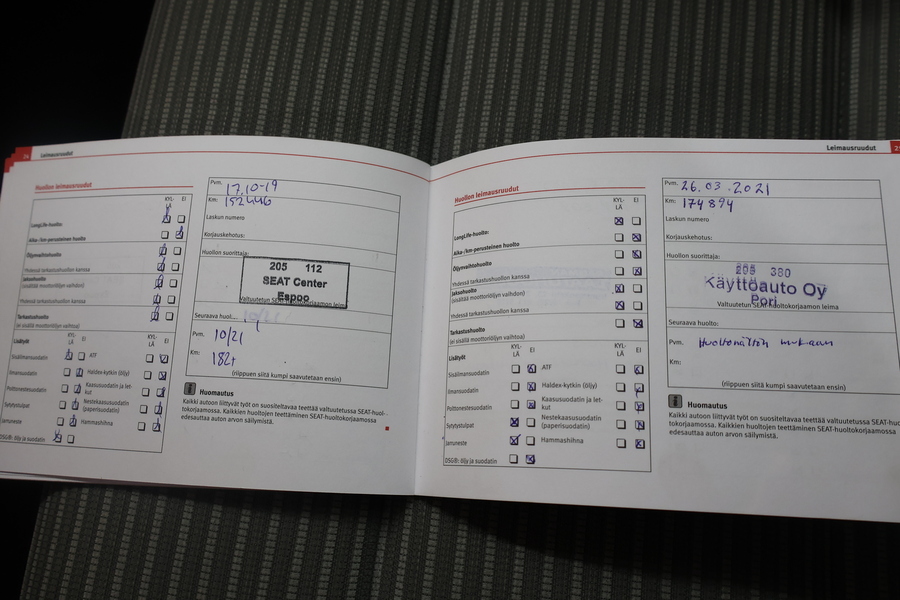 24 Leimausruudut
Huollon leimausruudut
KYL-
LÄ EI
LongLife-huolto
Aika-/km-perusteinen huolto
Öljynvaihtohuolto
Yhdessä tarkastushuollon kanssa
Jaksohuolto
(sisältää moottoriöljyn vaihdon)
Yhdessä tarkastushuollon kanssa
Tarkastushuolto
(ei sisällä moottoriöljyn vaihtoa)
Lisätyöt
KYL-
LÄ EI
KYL-
LÄ EI
Sisäilmansuodatin
ATF
Ilmansuodatin
Haldex-kytkin (öljy)
Polttonestesuodatin
Kaasusuodatin ja let-
kut
Sytytystulpat
Nestekaasusuodatin
(paperisuodatin)
Jarruneste
Hammashihna
DSG®: öljy ja suodatin
Pvm. 17.10-19
Km: 152446
Laskun numero
Korjauskehotus:
Huollon suorittaja:
205 112
SEAT Center
Espoo
Valtuutetun SEAT-huoltokorjaamon leima
Seuraava huol...
Pvm. 10/21
Km: 182+
(riippuen siitä kumpi saavutetaan ensin)
Huomautus
Kaikki autoon liittyvät työt on suositeltavaa teettää valtuutetussa SEAT-huol-
tokorjaamossa. Kaikkien huoltojen teettäminen SEAT-huoltokorjaamossa
edesauttaa auton arvon säilymistä.
Leimausruudut
Huollon leimausruudut
KYL-
LÄ EI
LongLife-huolto:
Aika-/km-perusteinen huolto
Öljynvaihtohuolto
Yhdessä tarkastushuollon kanssa
Jaksohuolto
(sisältää moottoriöljyn vaihdon)
Yhdessä tarkastushuollon kanssa
Tarkastushuolto
(ei sisällä moottoriöljyn vaihtoa)
Lisätyöt
KYL-
LÄ EI
KYL-
LÄ EI
Sisäilmansuodatin
ATF
Ilmansuodatin
Haldex-kytkin (öljy)
Polttonestesuodatin
Kaasusuodatin ja let-
kut
Sytytystulpat
Nestekaasusuodatin
(paperisuodatin)
Jarruneste
Hammashihna
DSG®: öljy ja suodatin
Pvm. 26.03.2021
Km: 174894
Laskun numero
Korjauskehotus:
Huollon suorittaja:
205 380
Käyttöauto Oy
Pori
Valtuutetun SEAT-huoltokorjaamon leima
Seuraava huolto:
Pvm. Huoltonäytön mukaan
Km:
(riippuen siitä kumpi saavutetaan ensin)
Huomautus
Kaikki autoon liittyvät työt on suositeltavaa teettää valtuutetussa
tokorjaamossa. Kaikkien huoltojen teettäminen SEAT-huoltokorjaamossa
edesauttaa auton arvon säilymistä.